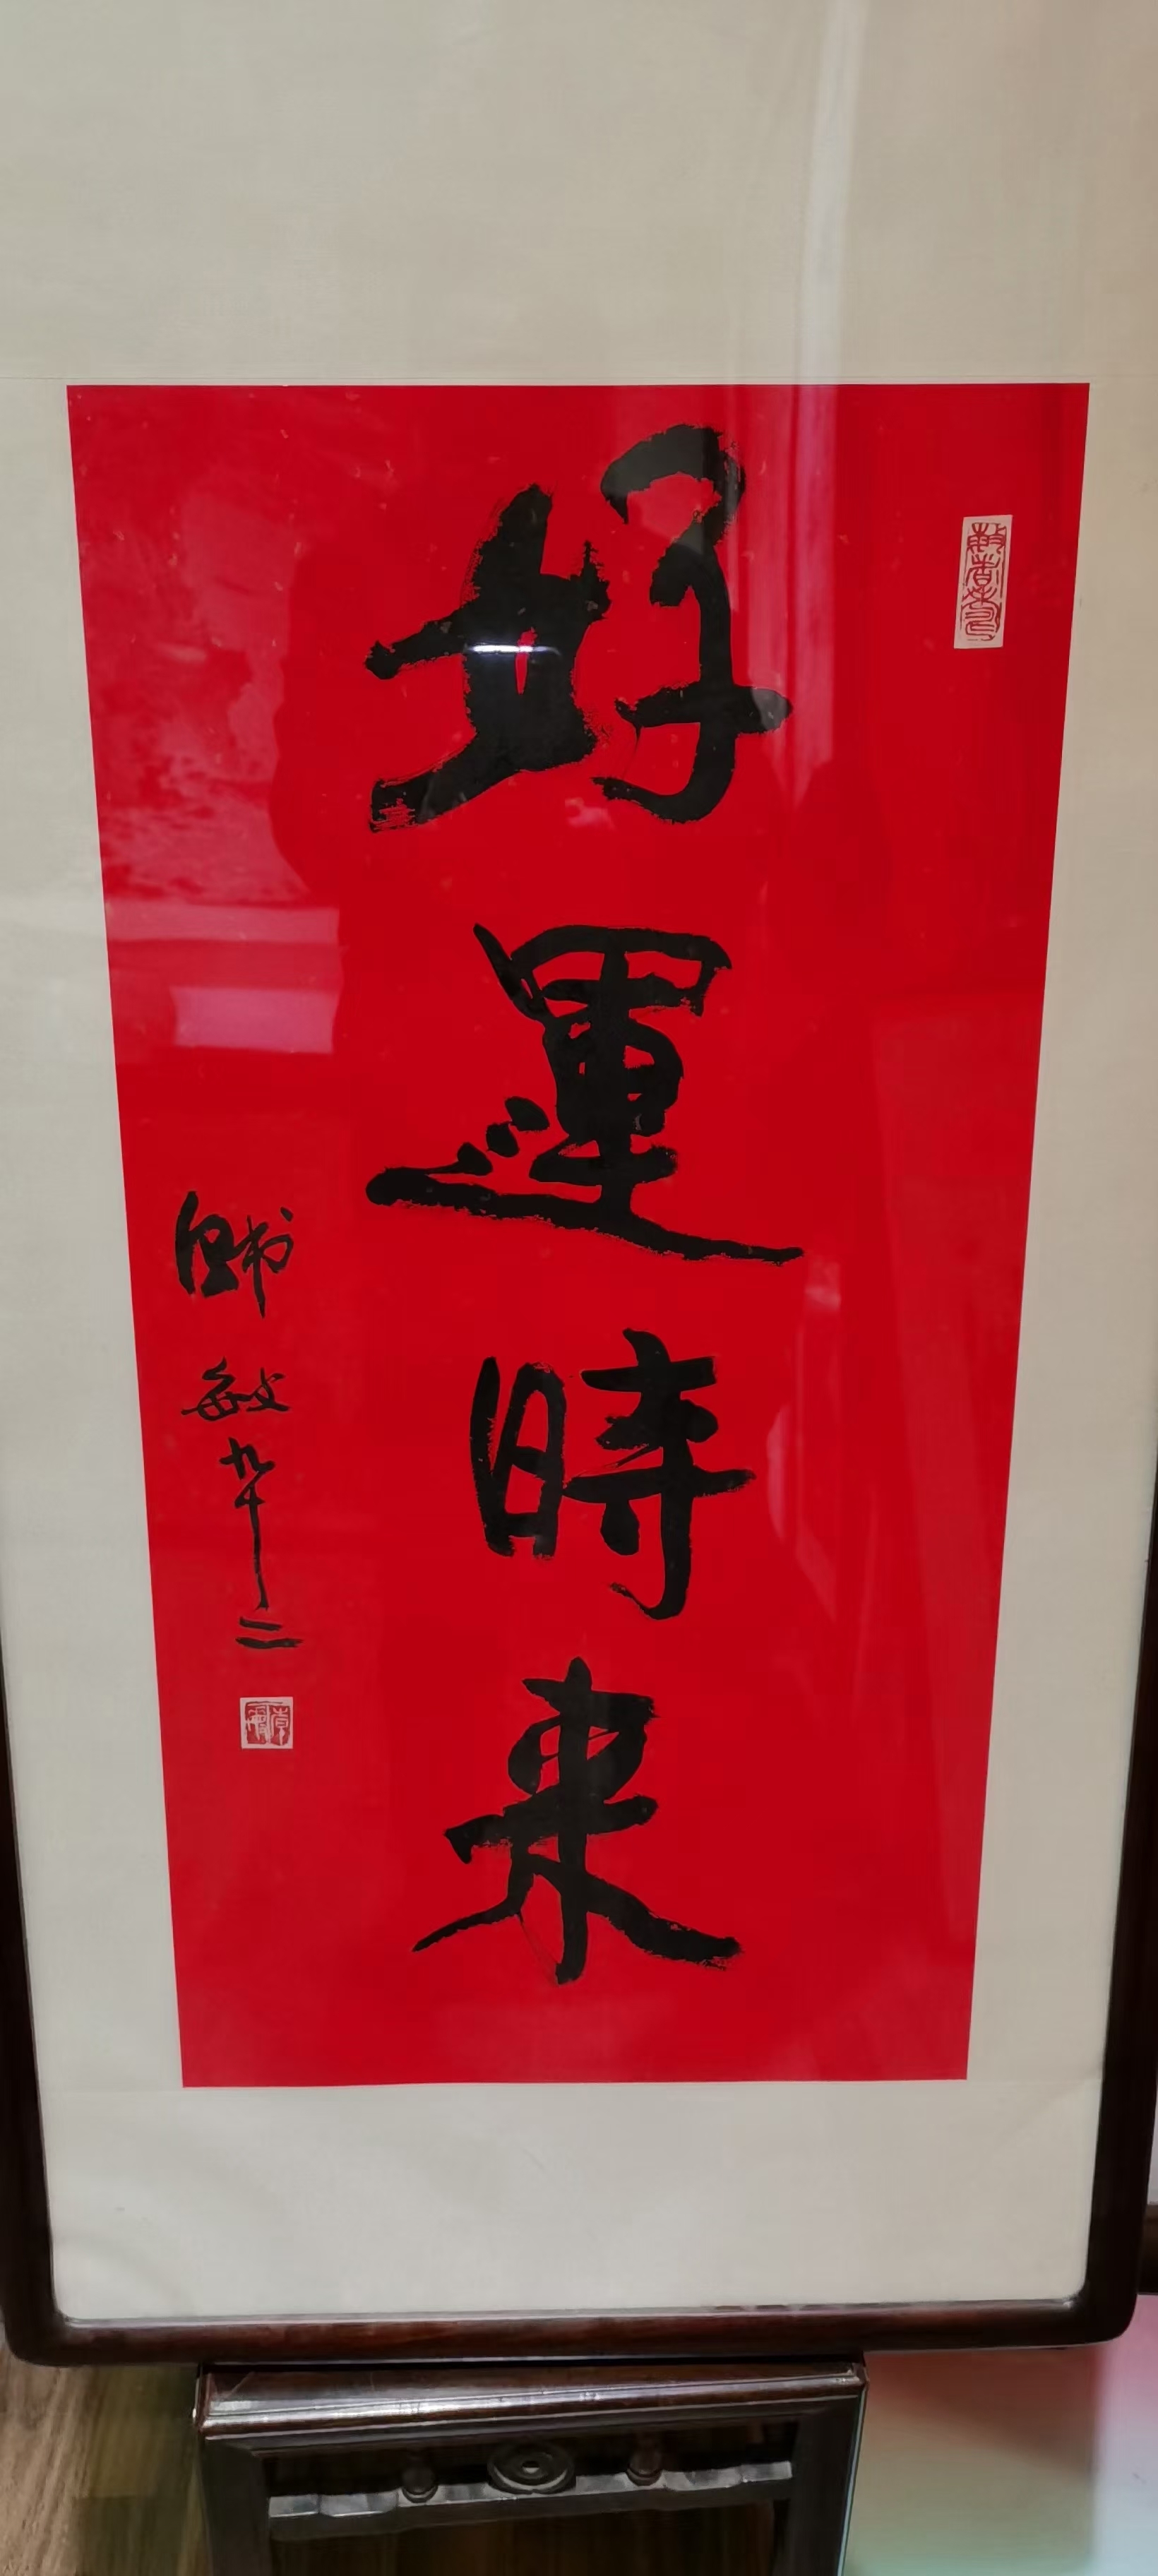 好運時來
敏九十二